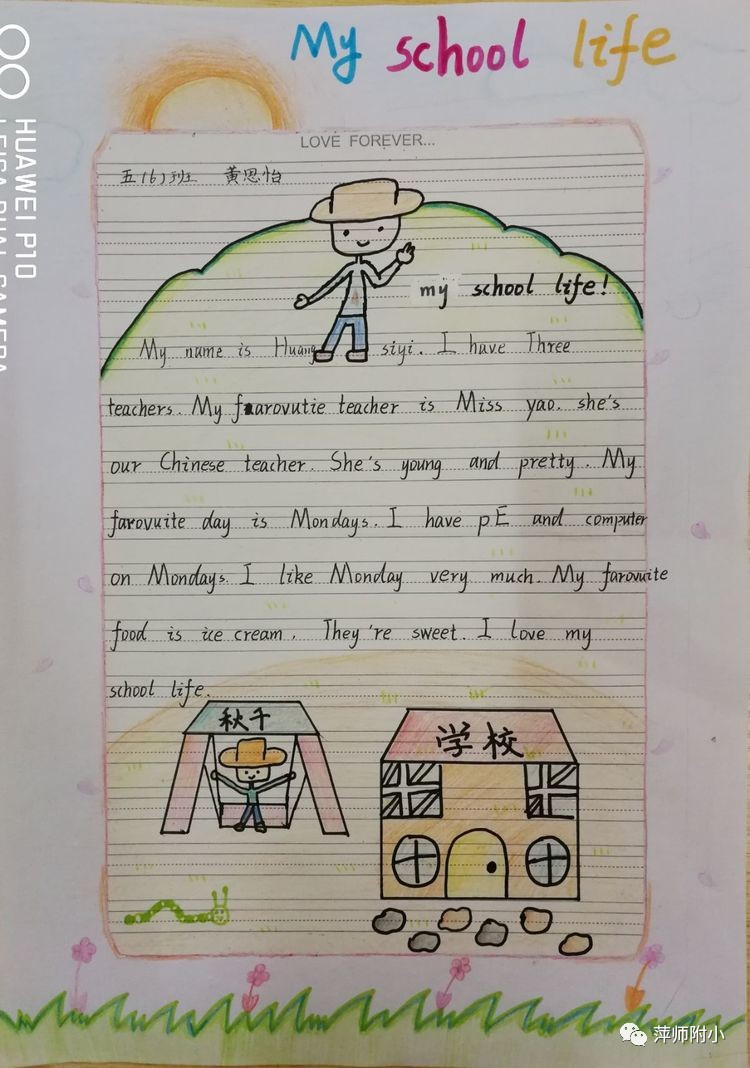 My school life
LOVE FOREVER...
五(6)班 黄思怡
my school life!
My name is Huang siyi. I have Three
teachers. My farovutie teacher is Miss yao. she's
our Chinese teacher. She's young and pretty. My
farovuite day is Mondays. I have pE and computer
on Mondays. I like Monday very much. My farovuite
food is ice cream. They're sweet. I love my
school life.
秋千
学校
HUAWEI P10
LEICA DUAL CAMERA
萍师附小